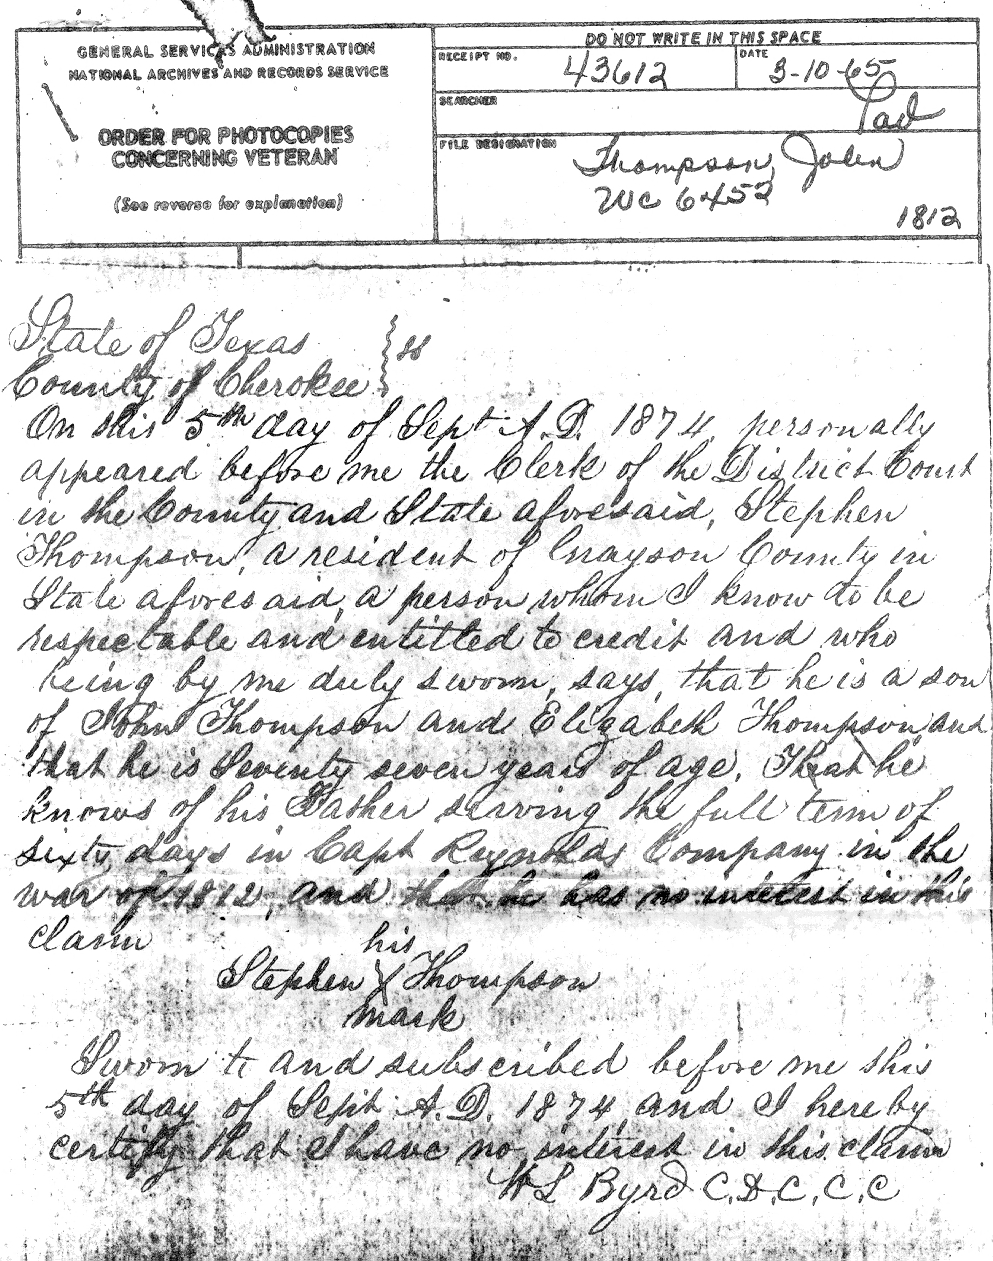 GENERAL SERVICES ADMINISTRATION
NATIONAL ARCHIVES AND RECORDS SERVICE
ORDER FOR PHOTOCOPIES
CONCERNING VETERAN
(See reverse for explanation)
DO NOT WRITE IN THIS SPACE
RECEIPT NO.
43612
DATE
3-10-65
SEARCHER
FILE DESIGNATION
Thompson, John
WC 6452
1812
State of Texas
County of Cherokee } ss
On this 5th day of Sept A.D. 1874, personally
appeared before me the Clerk of the District Court
in the County and State aforesaid, Stephen
Thompson, a resident of Grayson County in
State aforesaid, a person whom I know to be
respectable and entitled to credit and who
being by me duly sworn, says, that he is a son
of John Thompson and Elizabeth Thompson, and
that he is Seventy seven years of age. That he
knows of his Father serving the full term of
sixty days in Capt Reynolds Company in the
war of 1812, and that he has no interest in this
claim
his
Stephen X Thompson
mark
Sworn to and subscribed before me this
5th day of Sept A.D. 1874 and I hereby
certify that I have no interest in this claim
W L Byrd C.D.C.C.C